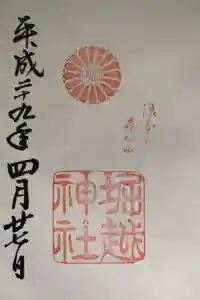 堀越
神社
平成二十九年四月廿七日